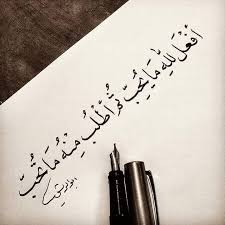 أفْعَلْ لِلّٰهِ مَا يُحِبّ ثُمَّ اُطْلُبْ مِنْهُ مَا تُحِبّ